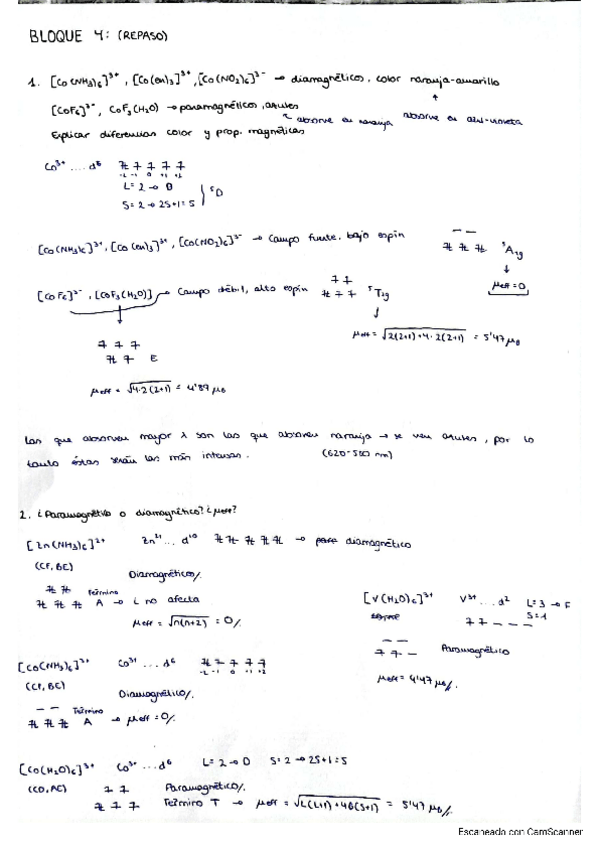 BLOQUE 4: (REPASO)
1. [Co(NH3)6]3+, [Co(en)3]3+, [Co(NO2)6]3- → diamagnéticos, color naranja-amarillo
[CoF6]3-, CoF3(H2O) → paramagnéticos, azules
absorve en naranja absorve en azul-violeta
Explicar diferencias color y prop. magnéticas
Co3+ .... d6
-2 -1 0 +1 +2
L = 2 → D
S = 2 → 2S+1 = 5
5D
[Co(NH3)6]3+, [Co(en)3]3+, [Co(NO2)6]3- → Campo fuerte, bajo espín
1A1g
μeff = 0
[CoF6]3-, [CoF3(H2O)] → Campo débil, alto espín 5T2g
μeff = √2(2+1)+4·2(2+1) = 5'47 μB
E
μeff = √4·2(2+1) = 4'89 μB
Las que absorven mayor λ son las que absorven naranja → se ven azules, por lo
tanto éstas serán las más intensas. (620-580 nm)
2. ¿Paramagnético o diamagnético? ¿μeff?
[Zn(NH3)6]2+ Zn2+ ... d10 → diamagnético
(CF, BE)
Diamagnéticos/.
Término A → L no afecta
μeff = √n(n+2) = 0/.
[V(H2O)6]3+ V3+ ... d2 L = 3 → F
S = 1
Paramagnético
μeff = 4'47 μB/.
[Co(NH3)6]3+ Co3+ ... d6
-2 -1 0 +1 +2
(CF, BE)
Diamagnético/.
Término A → μeff = 0/.
[Co(H2O)6]3+ Co3+ ... d6 L = 2 → D S = 2 → 2S+1 = 5
(CD, AE)
Paramagnético/.
Término T → μeff = √L(L+1)+4S(S+1) = 5'47 μB/.
Escaneado con CamScanner